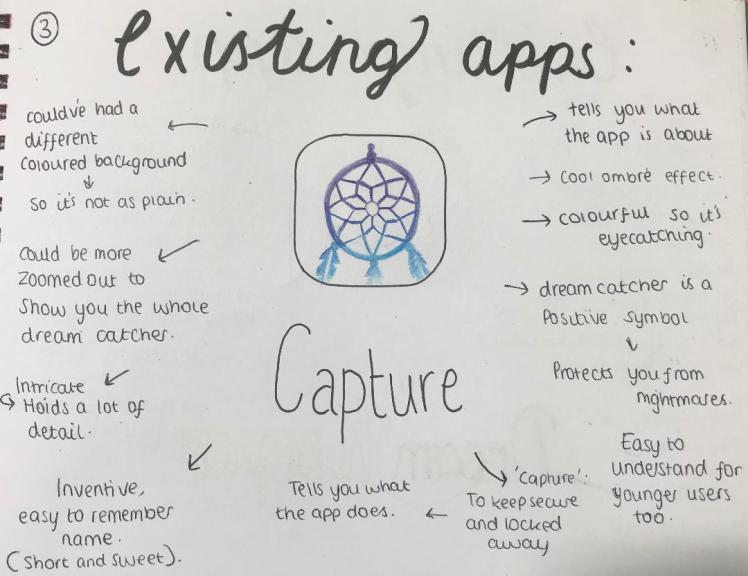 3
existing apps:
could've had a
different
coloured background
so it's not as plain.
could be more
zoomed out to
show you the whole
dream catcher.
Intricate
Holds a lot of
detail.
Inventive,
easy to remember
name.
(short and sweet).
tells you what
the app is about
cool ombré effect.
colourful so it's
eyecatching.
dream catcher is a
positive symbol
Protects you from
nightmares.
Capture
'capture':
To keep secure
and locked
away
Tells you what
the app does.
Easy to
understand for
younger users
too.